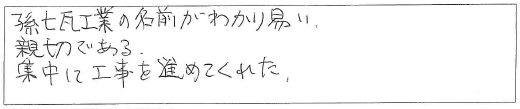 孫七瓦工業の名前がわかり易い.
親切である.
集中して工事を進めてくれた.